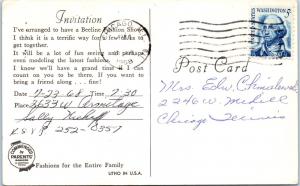 Invitation
I've arranged to have a Beeline Fashion Show.
I think it is a terrific way for a few of us to
get together.
It will be a lot of fun seeing and perhaps
even modeling the latest fashions.
I know we'll have a grand time if I can
count on you to be there. If you want to
bring a friend along ... fine!
Date 7-23-68 Time 7:30
Place 3633 W. Armitage
Sally
R.S.V.P. 252-0357
COMMENDED
PARENTS'
MAGAZINE
Fashions for the Entire Family
LITHO IN U.S.A.
CHICAGO
1968
UNITED STATES
5c
WASHINGTON
Post Card
Mrs. Edw.
2246 W.
Chicago Illinois